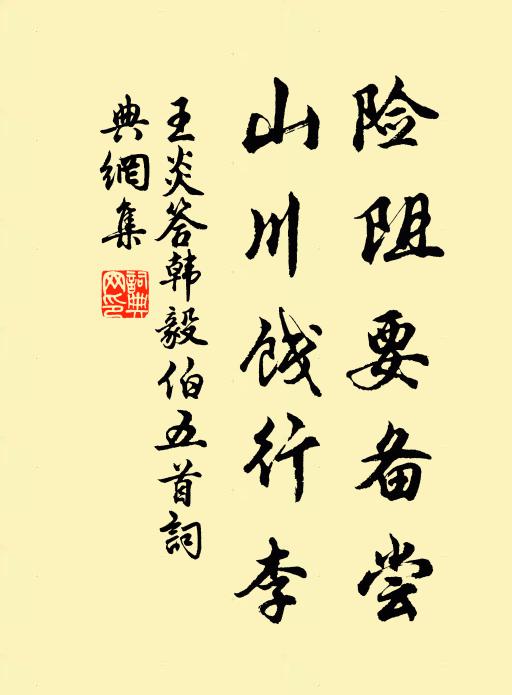 险阻要备尝
山川饯行李
王炎答韩毅伯五首詞
典網集
詞典
网印